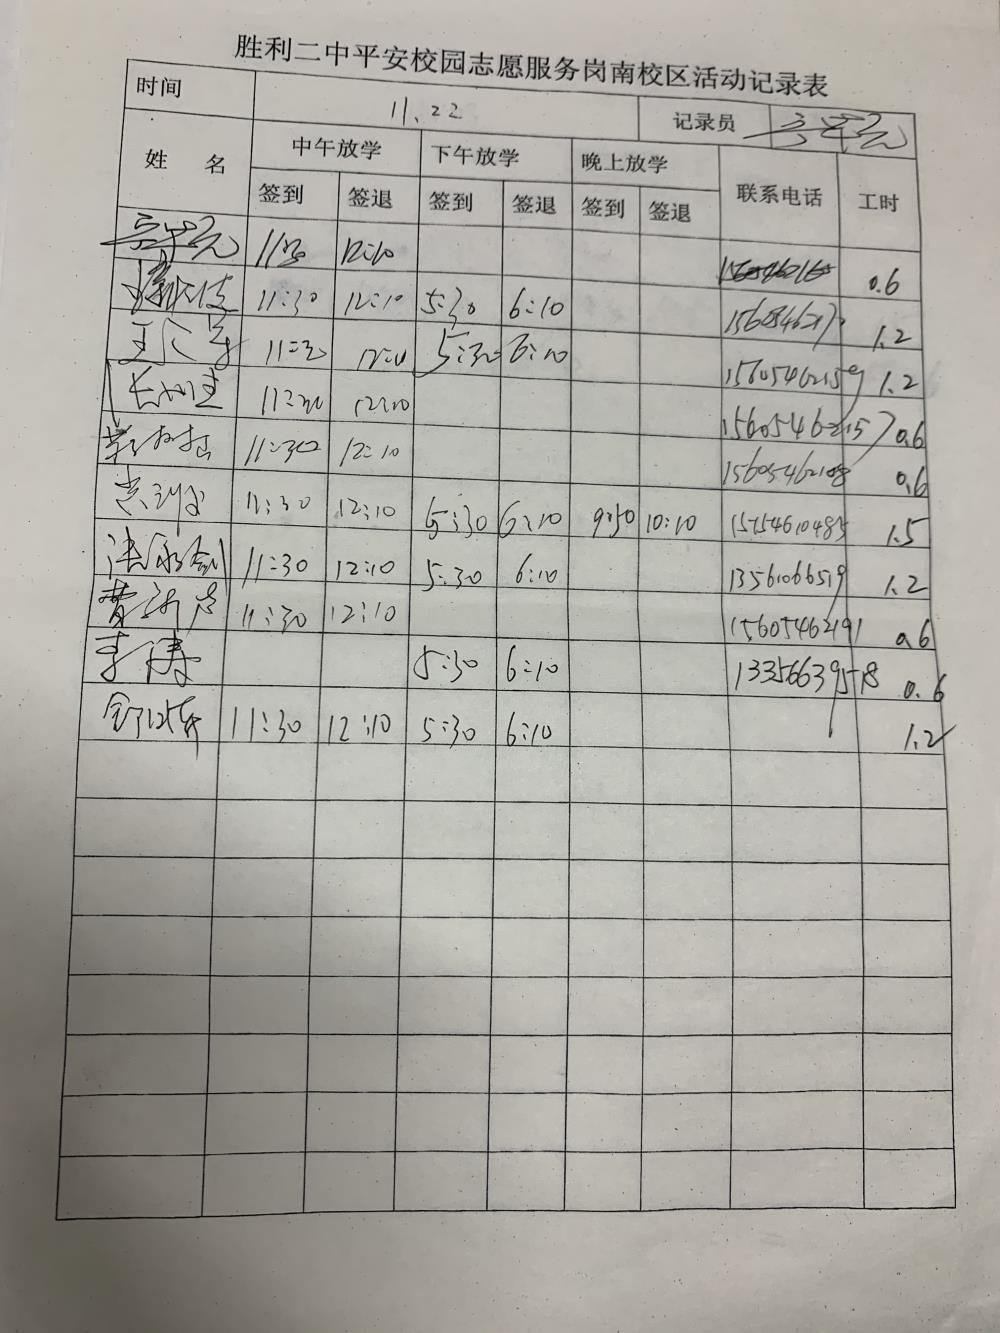 胜利二中平安校园志愿服务岗南校区活动记录表
时间 11.22 记录员
姓 名 中午放学 下午放学 晚上放学 联系电话 工时
签到 签退 签到 签退 签到 签退
12:10 0.6
11:30 12:10 5:30 6:10 1.2
5:30 6:10 15605462159 1.2
11:30 12:10 0.6
11:30 12:10 0.6
11:30 12:10 5:30 6:10 9:50 10:10 15754610485 1.5
11:30 12:10 5:30 6:10 13561066519 1.2
11:30 12:10 15605462191 0.6
李涛 5:30 6:10 13356639578 0.6
11:30 12:10 5:30 6:10 1.2